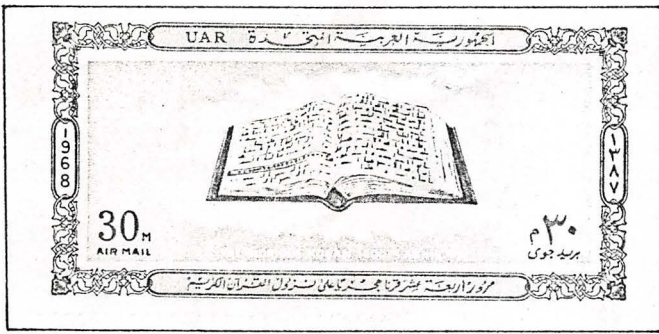 UAR الجمهورية العربية المتحدة
1968
١٣٨٧
30 M
AIR MAIL
٣٠ م
بريد جوى
مرور أربعة عشر قرنا هجريا على نزول القرآن الكريم